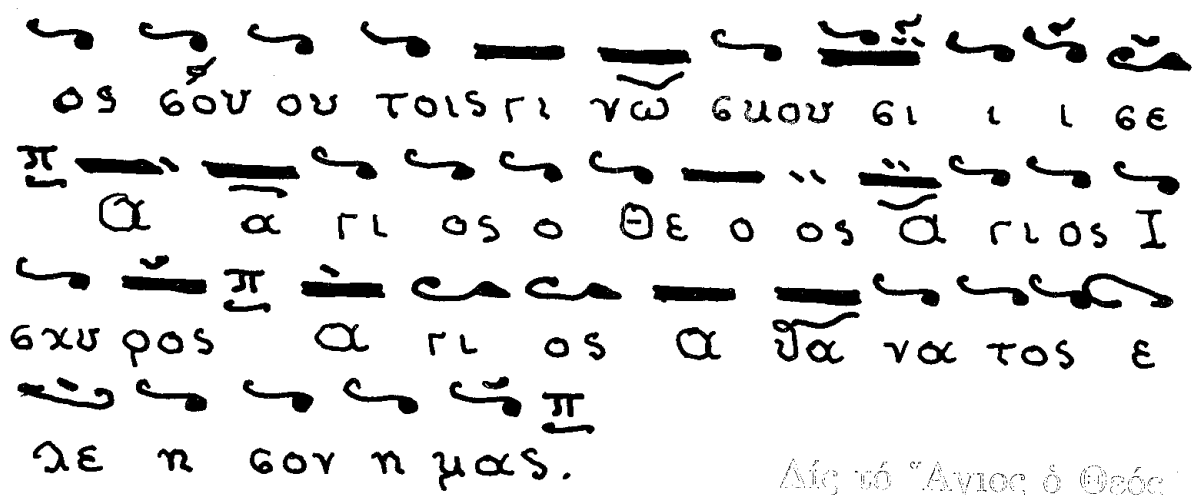 ος σου ου τοις γι νω σκου σι ι ι σε
Α α γι ος ο Θε ο ος Α γι ος Ι
σχυ ρος Α γι ος α θα να τος ε
λε η σον η μας.
Δίς τό Ἅγιος ὁ Θεός